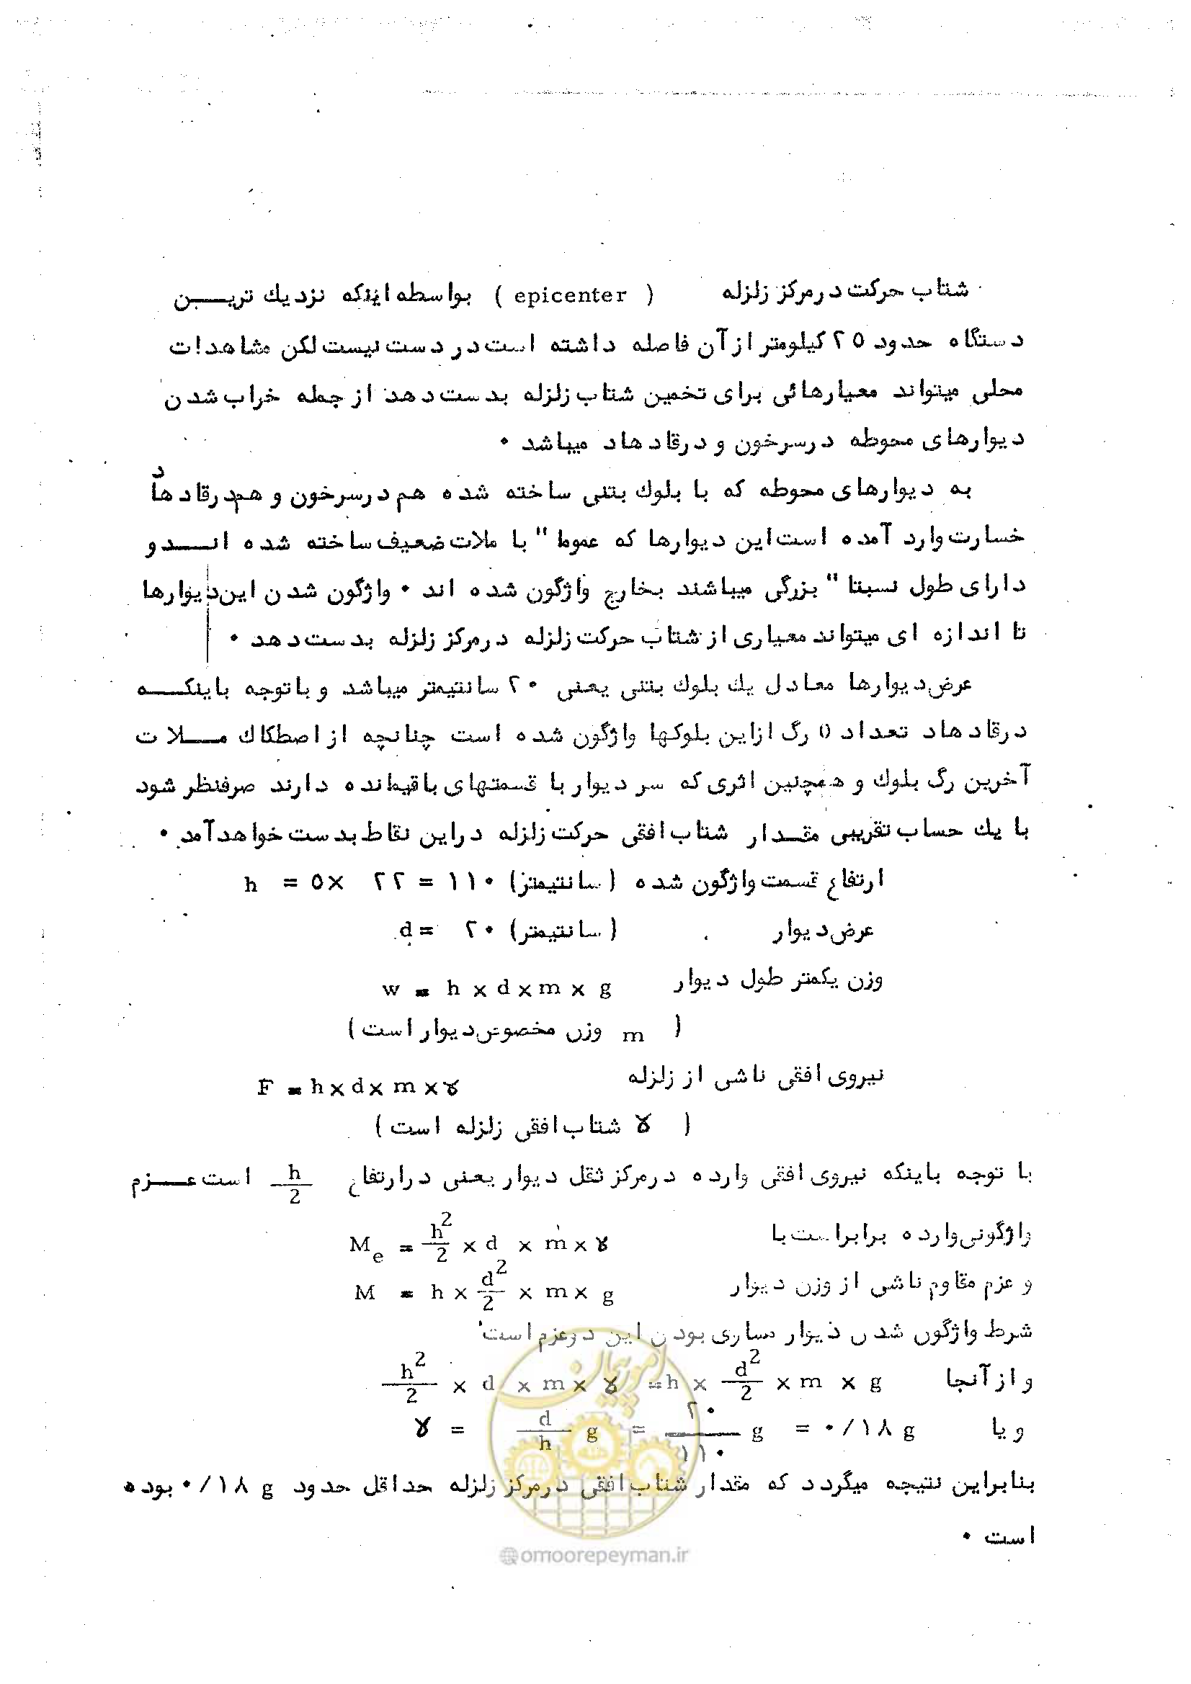 شتاب حرکت در مرکز زلزله ( epicenter ) بواسطه اینکه نزدیك تریـــن
دستگاه حدود ۲۵ کیلومتر از آن فاصله داشته است در دست نیست لکن مشاهدات
محلی میتواند معیارهائی برای تخمین شتاب زلزله بدست دهد از جمله خراب شدن
دیوارهای محوطه در سرخون و در قادهاد میباشد ۰
به دیوارهای محوطه که با بلوك بتنی ساخته شده هم در سرخون و هم در قادهاد
خسارت وارد آمده است این دیوارها که عموما" با ملات ضعیف ساخته شده انــدو
دارای طول نسبتا" بزرگی میباشند بخارج واژگون شده اند ۰ واژگون شدن این دیوارها
تا اندازه ای میتواند معیاری از شتاب حرکت زلزله در مرکز زلزله بدست دهد ۰
عرض دیوارها معادل یك بلوك بتنی یعنی ۲۰ سانتیمتر میباشد و با توجه باینکـــه
در قادهاد تعداد ۵ رگ ازاین بلوکها واژگون شده است چنانچه از اصطکاك مــلات
آخرین رگ بلوك و همچنین اثری که سر دیوار با قسمتهای باقیمانده دارند صرفنظر شود
با یك حساب تقریبی مقـدار شتاب افقی حرکت زلزله دراین نقاط بدست خواهد آمد ۰
ارتفاع قسمت واژگون شده (سانتیمتر) h = ۵× ۲۲ = ۱۱۰
عرض دیوار (سانتیمتر) d = ۲۰
وزن یکمتر طول دیوار w = h × d × m × g
( m وزن مخصوص دیوار است )
نیروی افقی ناشی از زلزله F = h × d × m × ɤ
( ɤ شتاب افقی زلزله است )
با توجه باینکه نیروی افقی وارده در مرکز ثقل دیوار یعنی در ارتفاع h/2 است عـــزم
واژگونی وارده برابراست با Me = h²/2 × d × m × ɤ
و عزم مقاوم ناشی از وزن دیوار M = h × d²/2 × m × g
شرط واژگون شدن دیوار مساوی بودن این دو عزم است
و از آنجا h²/2 × d × m × ɤ = h × d²/2 × m × g
و یا ɤ = d/h g = ۲۰/۱۱۰ g = ۰/۱۸ g
بنابراین نتیجه میگردد که مقدار شتاب افقی در مرکز زلزله حداقل حدود ۰/۱۸ g بوده
است ۰
امور پیمان
@omoorepeyman.ir